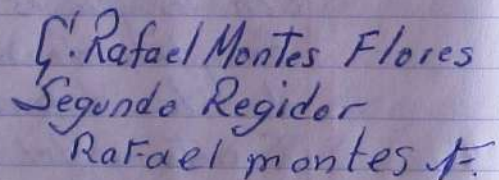 C. Rafael Montes Flores
Segundo Regidor
Rafael montes F.